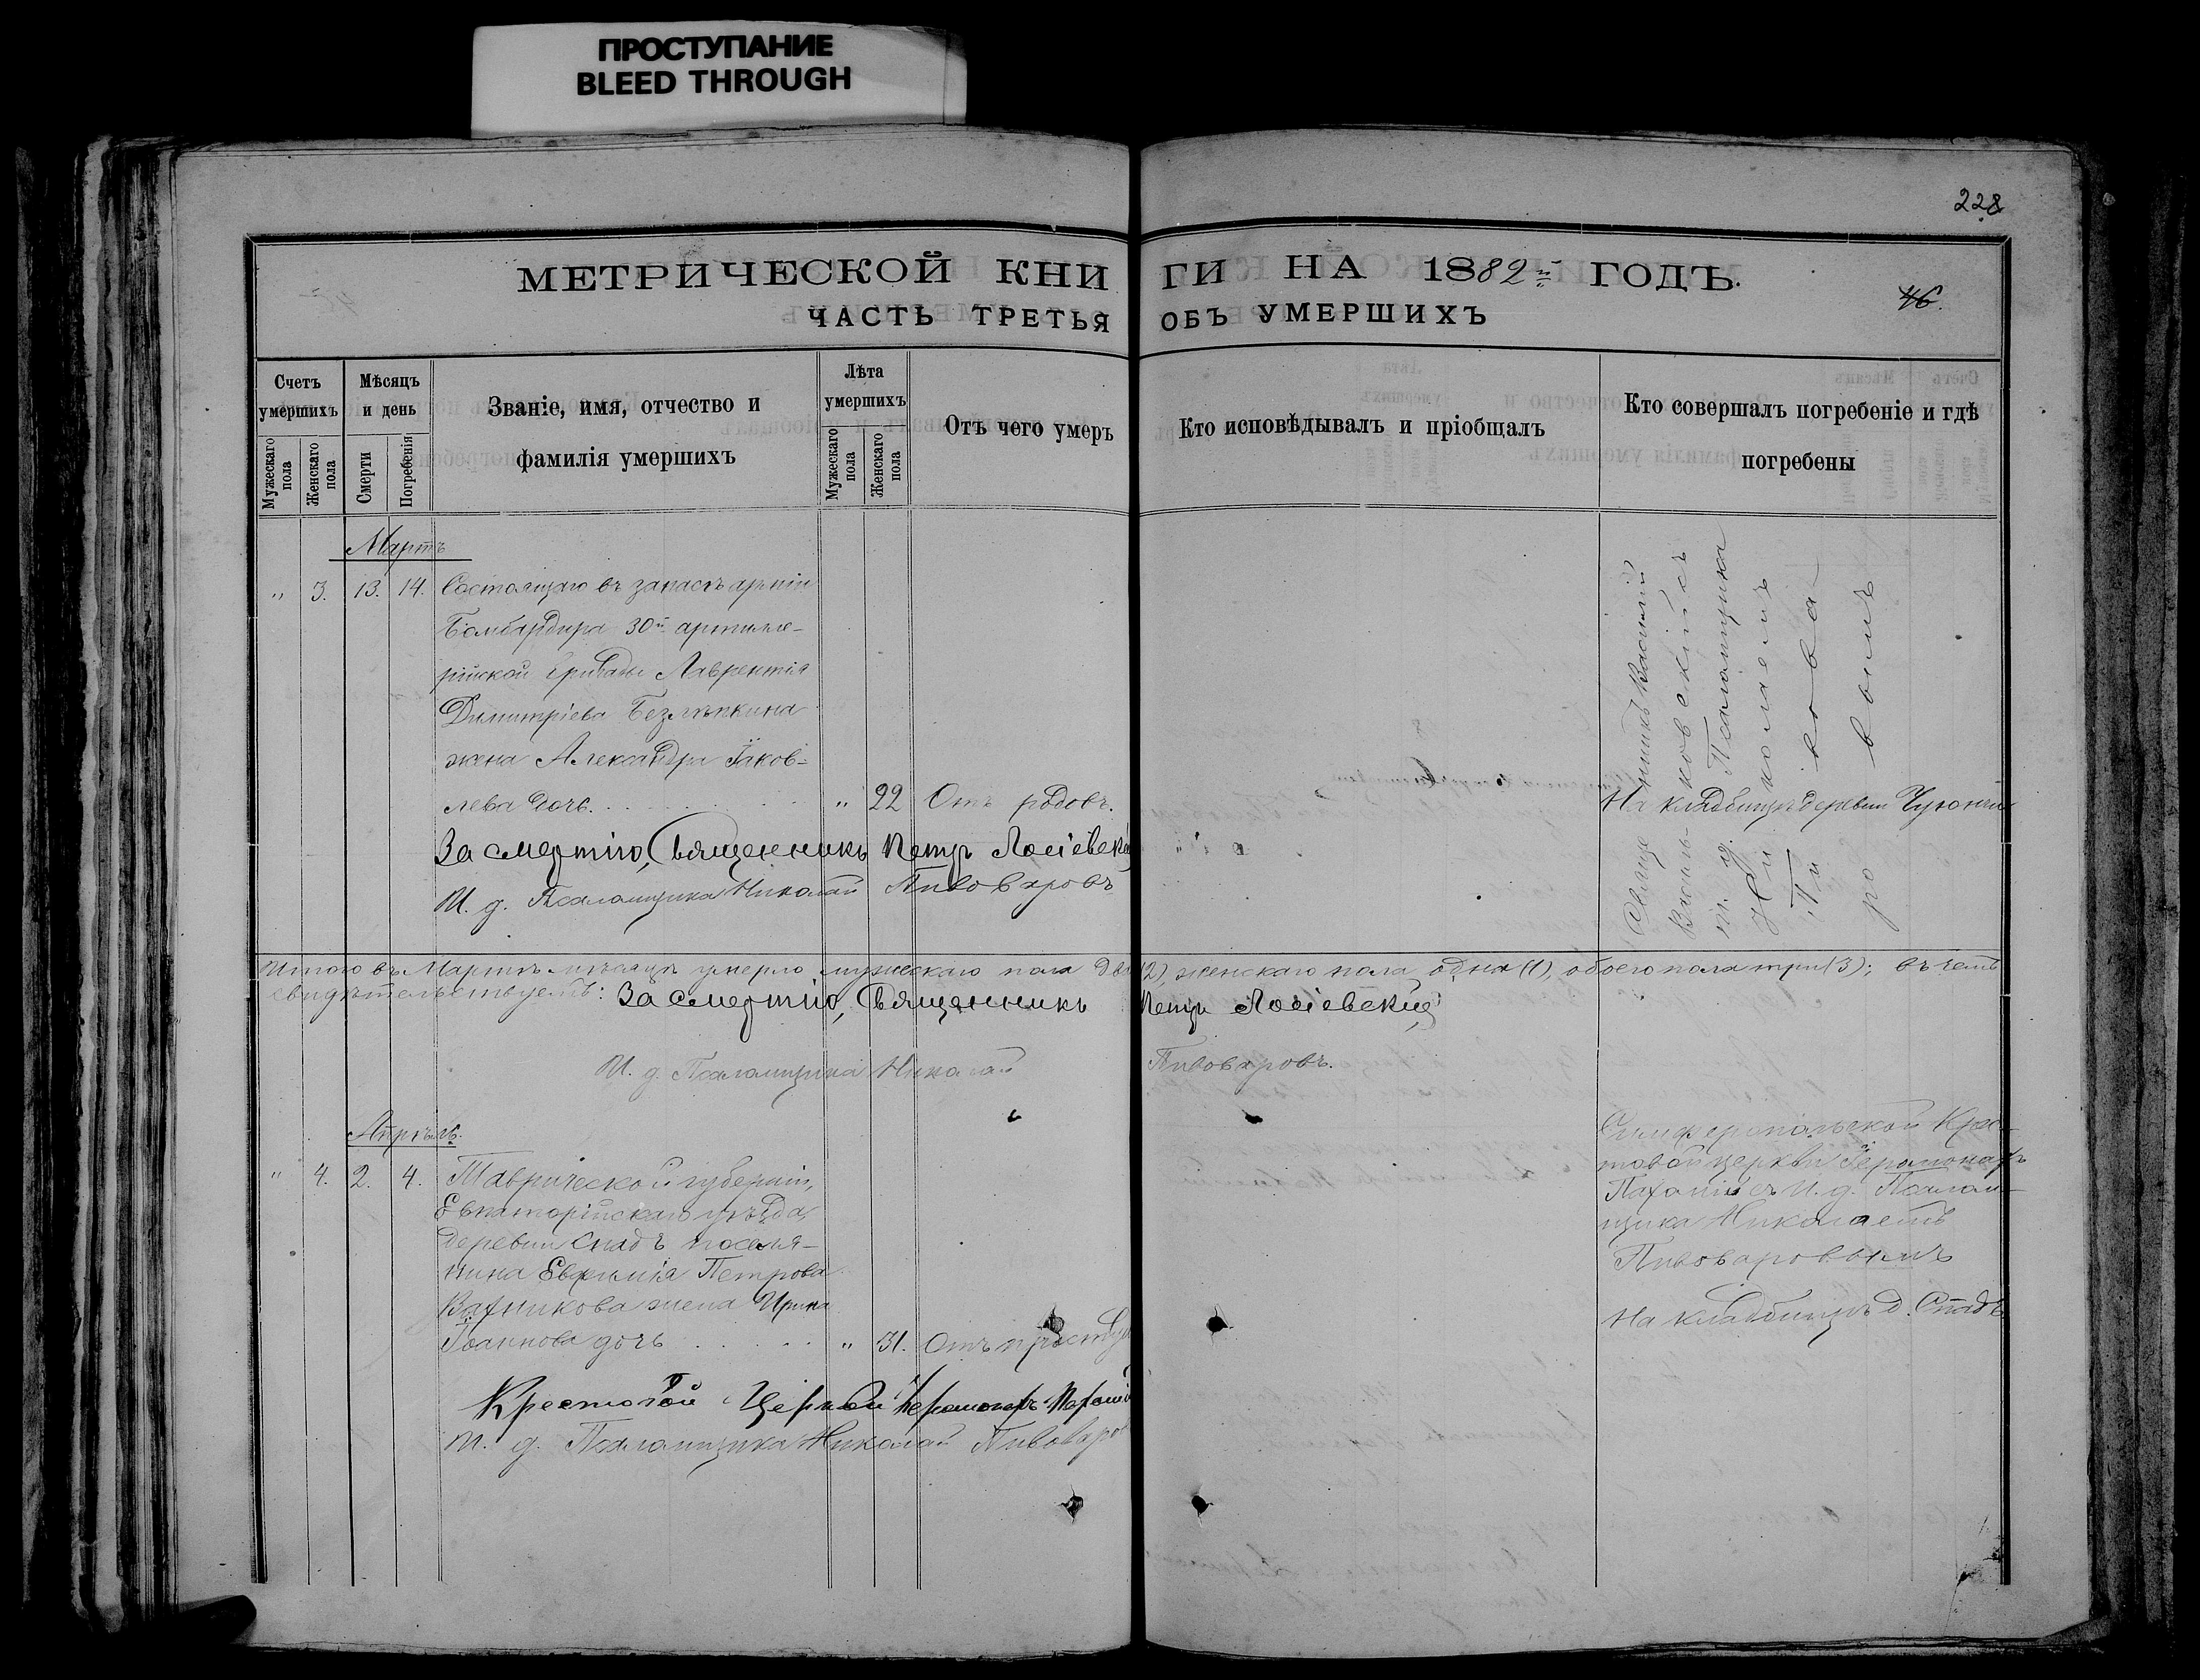 ПРОСТУПАНИЕ
BLEED THROUGH
228
МЕТРИЧЕСКОЙ КНИГИ НА 1882й ГОДЪ.
46.
ЧАСТЬ ТРЕТЬЯ ОБЪ УМЕРШИХЪ
Счетъ умершихъ
Мужескаго пола
Женскаго пола
Мѣсяцъ и день
Смерти
Погребенія
Званіе, имя, отчество и
фамилія умершихъ
Лѣта умершихъ
Мужескаго пола
Женскаго пола
Отъ чего умеръ
Кто исповѣдывалъ и пріобщалъ
Кто совершалъ погребеніе и гдѣ
погребены
Мартъ
" 3. 13. 14. Состоящаго въ запасѣ арміи
Бомбардира 30й артилле-
рійской бригады Лаврентія
Димитріева Безлѣпкина
жена Александра Іаков-
лева дочь. " 22 Отъ родовъ.
Священникъ Василій
Василь-ковскій съ
и. д. Псаломщика
Николаемъ
Пивова-
ровымъ
На кладбищѣ деревни
За смертію, Священникъ Петръ
И. д. Псаломщика Николай Пивоваровъ
Итого въ Мартѣ мѣсяцѣ умерло мужескаго пола два (2), женскаго пола одна (1), обоего пола три (3); въ чемъ
свидѣтельствуемъ: За смертію, Священникъ Петръ
И. д. Псаломщика Николай Пивоваровъ.
Апрѣль.
" 4. 2. 4. Таврической губерніи,
Евпаторійскаго уѣзда,
деревни Спадъ поселя-
нина Евфимія Петрова
Вахникова жена Ирина
Іоаннова дочь " 31. Отъ простуды
Симферопольской Крес-
товой церкви Іеромонахъ
Пахомій съ И. д. Псалом-
щика Николаемъ
Пивоваровымъ
На кладбищѣ д. Спадъ
Крестовой Церкви Іеромонахъ Пахомій
И. д. Псаломщика Николай Пивоваров